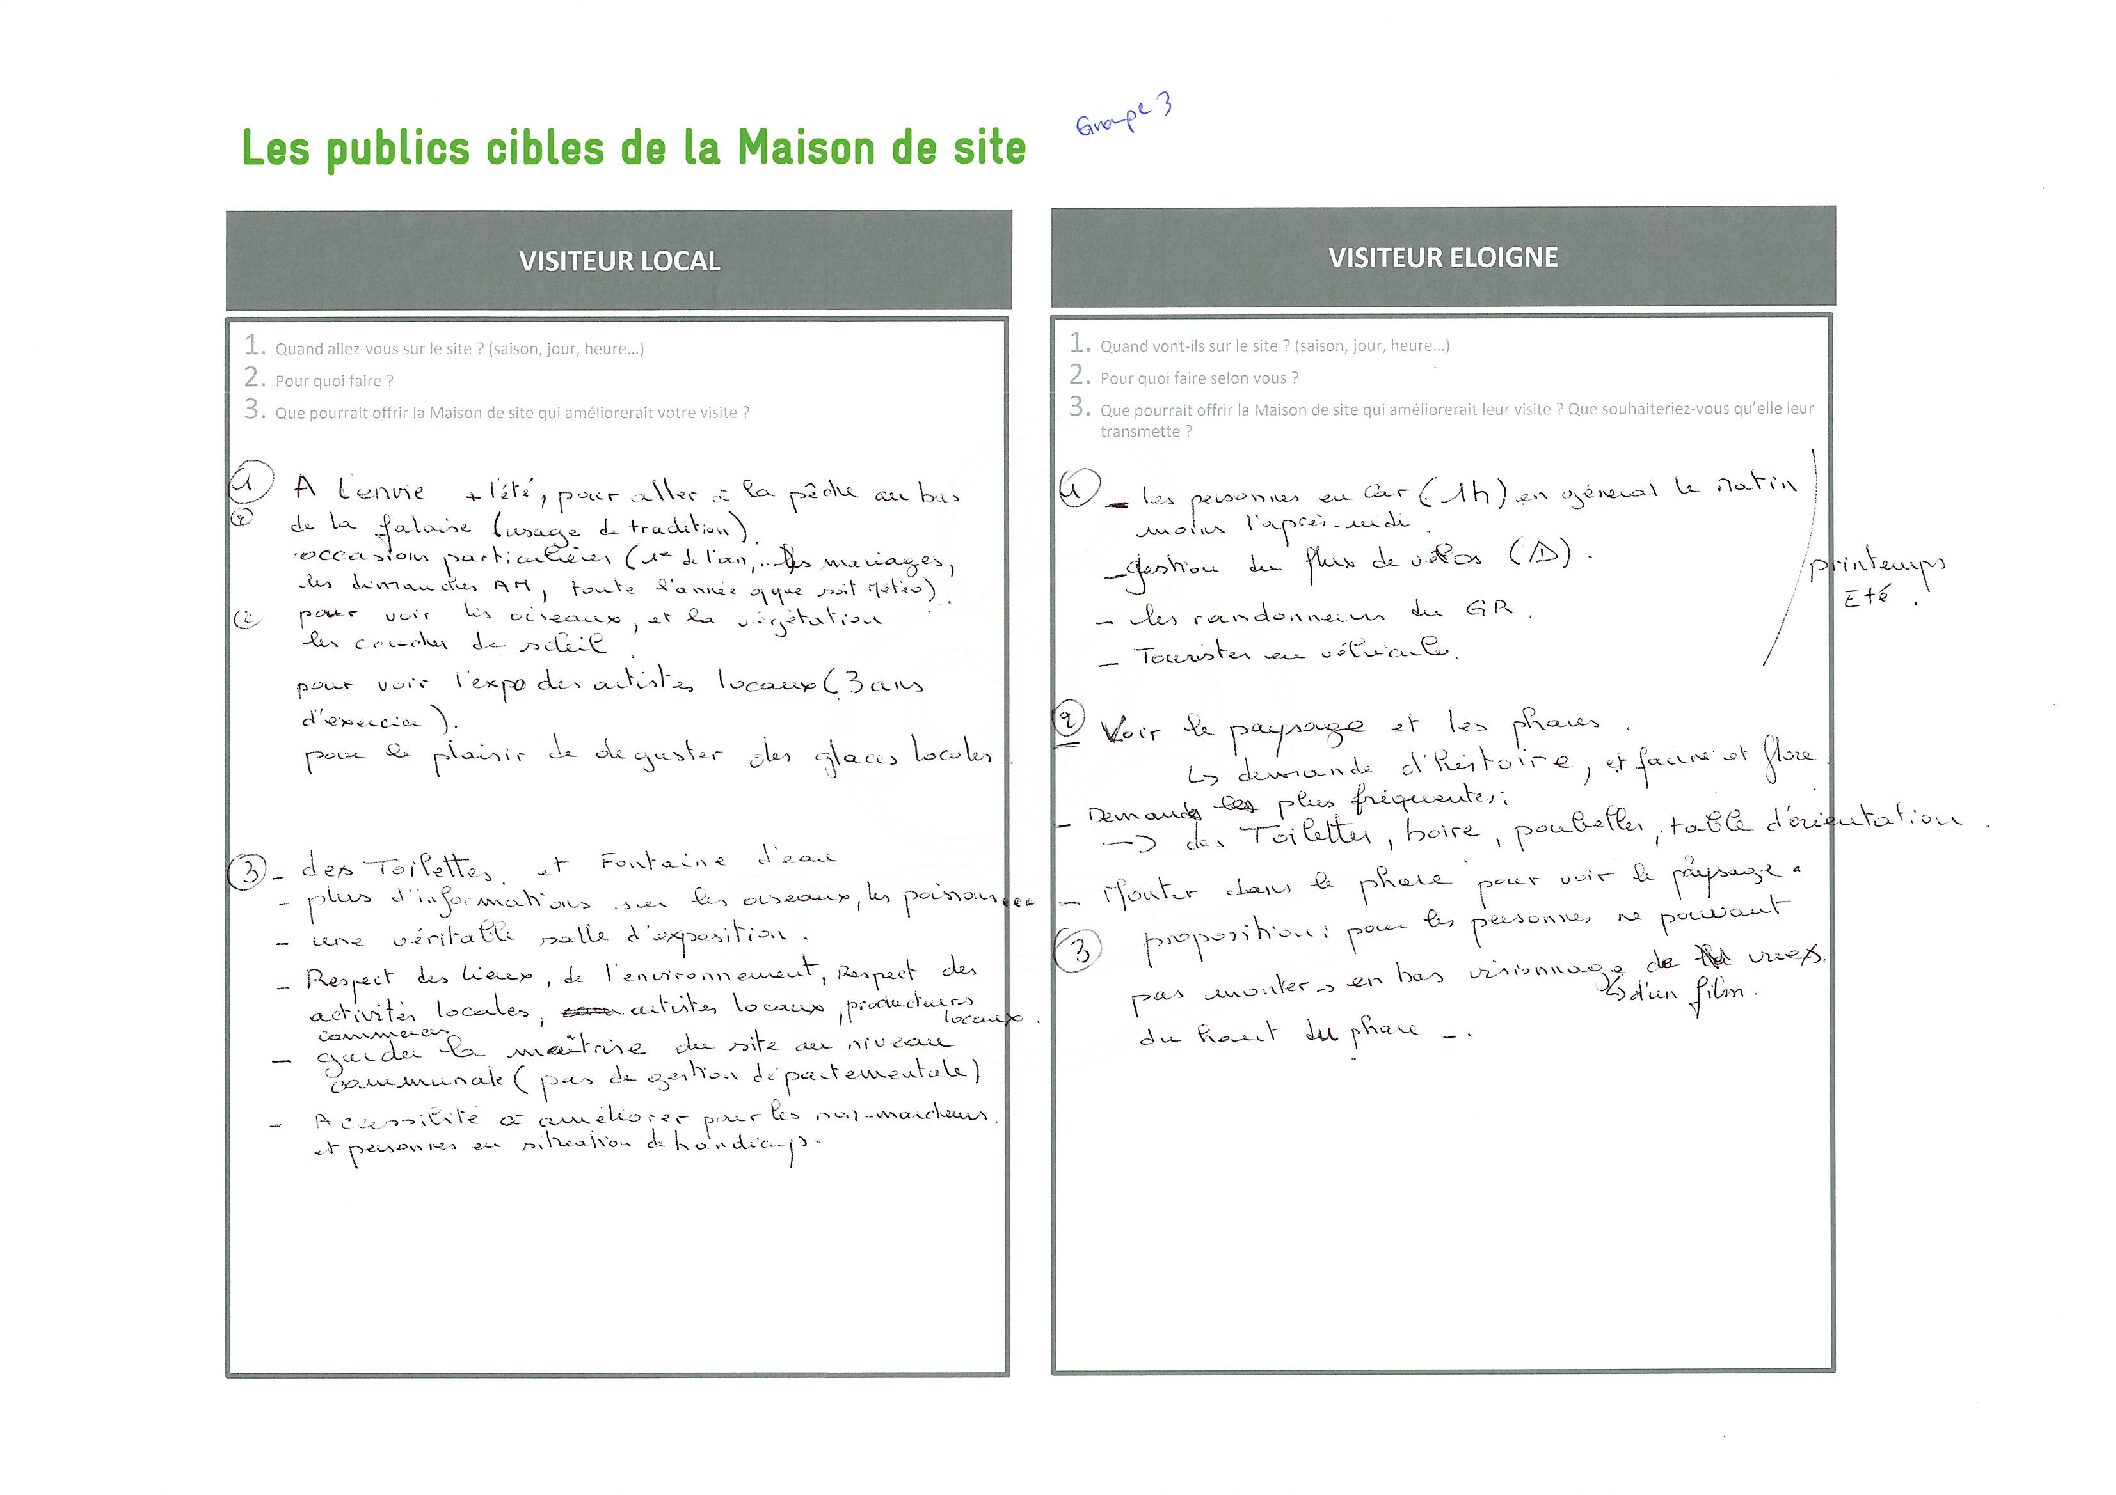 Groupe 3
Les publics cibles de la Maison de site
VISITEUR LOCAL
1. Quand allez-vous sur le site ? (saison, jour, heure...)
2. Pour quoi faire ?
3. Que pourrait offrir la Maison de site qui améliorerait votre visite ?
1 A l'envie + l'été, pour aller à la pêche au bas
2 de la falaise (usage de tradition)
occasions particulières (1er de l'an, ... les mariages,
les dimanches AM, toute l'année qque soit Météo).
2 pour voir les oiseaux, et la végétation
les couchers de soleil.
pour voir l'expo des artistes locaux (3 ans
d'exercice).
pour le plaisir de deguster des glaces locales.
3 - des Toilettes et Fontaine d'eau
- plus d'informations sur les oiseaux, les poissons...
- une véritable salle d'exposition.
- Respect des lieux, de l'environnement, Respect des
activités locales, artistes locaux, producteurs
locaux.
commerces
- garder la maîtrise du site au niveau
communale (pas de gestion départementale)
- Accessibilité à améliorer pour les non-marcheurs
et personnes en situation de handicaps.
VISITEUR ELOIGNE
1. Quand vont-ils sur le site ? (saison, jour, heure...)
2. Pour quoi faire selon vous ?
3. Que pourrait offrir la Maison de site qui améliorerait leur visite ? Que souhaiteriez-vous qu'elle leur
transmette ?
1 - Les personnes en Car (1h) en général le Matin
moins l'après-midi.
- gestion du flux de vélos
- les randonneurs du GR.
- Touristes en véhicule.
printemps
Eté.
2 Voir le paysage et les phares.
↳ demande d'histoire, et faune et flore.
- Demandes les plus fréquentes:
→ des Toilettes, boire, poubelles, table d'orientation.
- Monter dans le phare pour voir le paysage.
3 proposition: pour les personnes ne pouvant
pas monter → en bas visionnage de vues
↳ d'un film.
du haut du phare -.